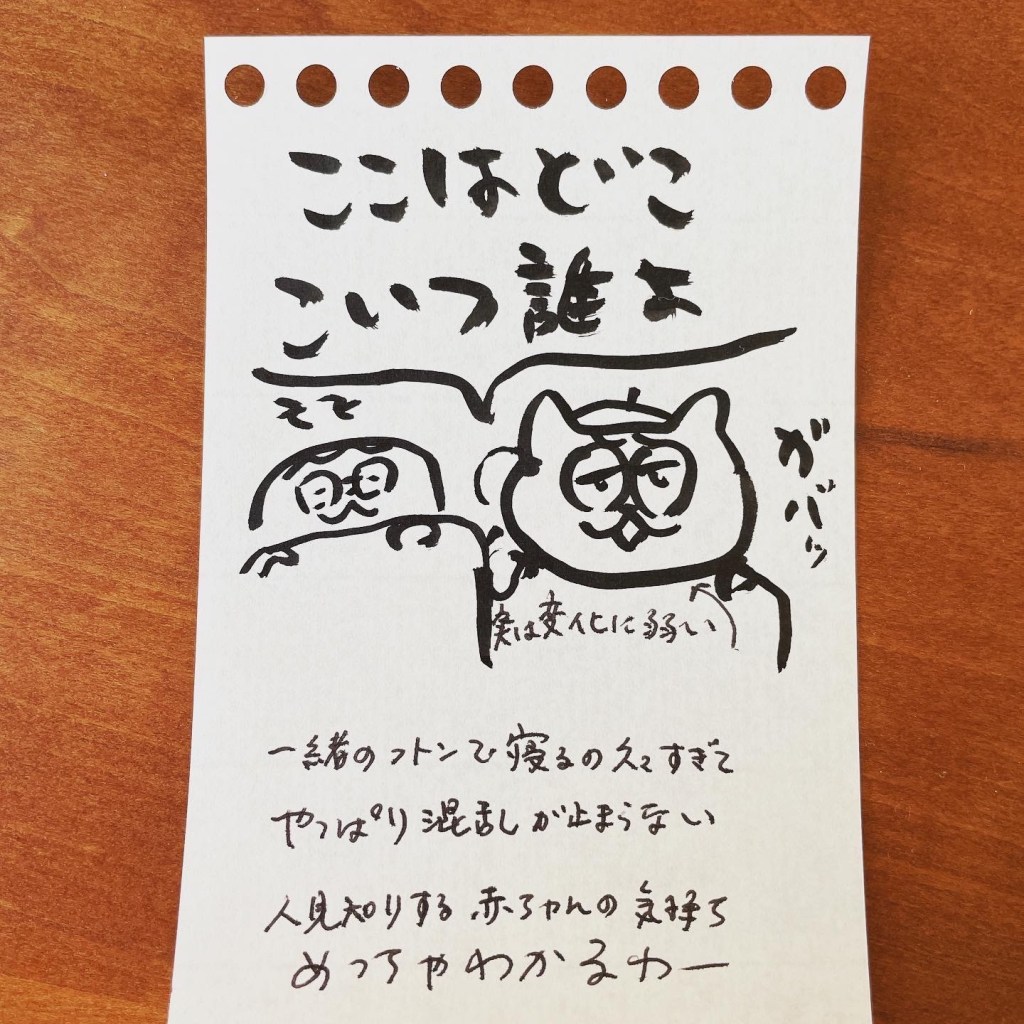 ここはどこ
こいつ誰よ
そそ
ガバッ
実は変化に弱い
一緒のフトンで寝るの久々すぎて
やっぱり混乱が止まらない
人見知りする赤ちゃんの気持ち
めっちゃわかるわー